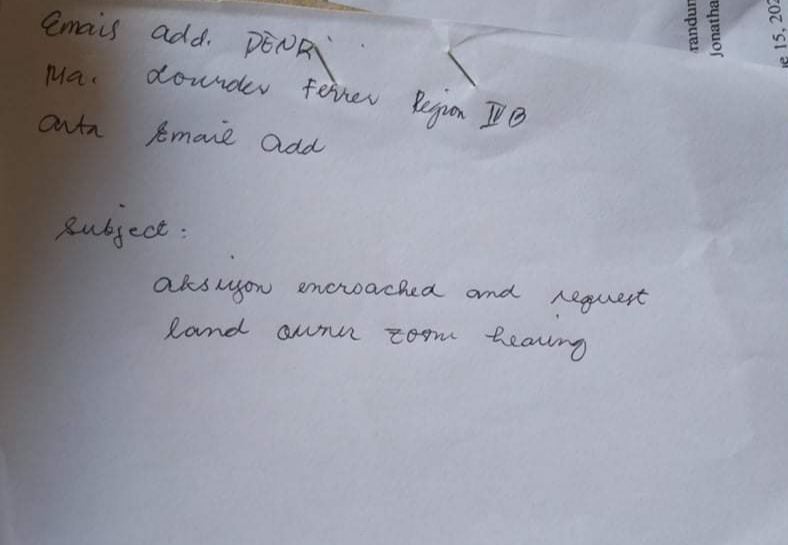 Emais add. DENR
Ma. Lourdes Ferrer Region IV B
Arta Email add
Subject:
aksiyon encroached and request
land owner zoom hearing
randum
Jonatha
e 15, 202